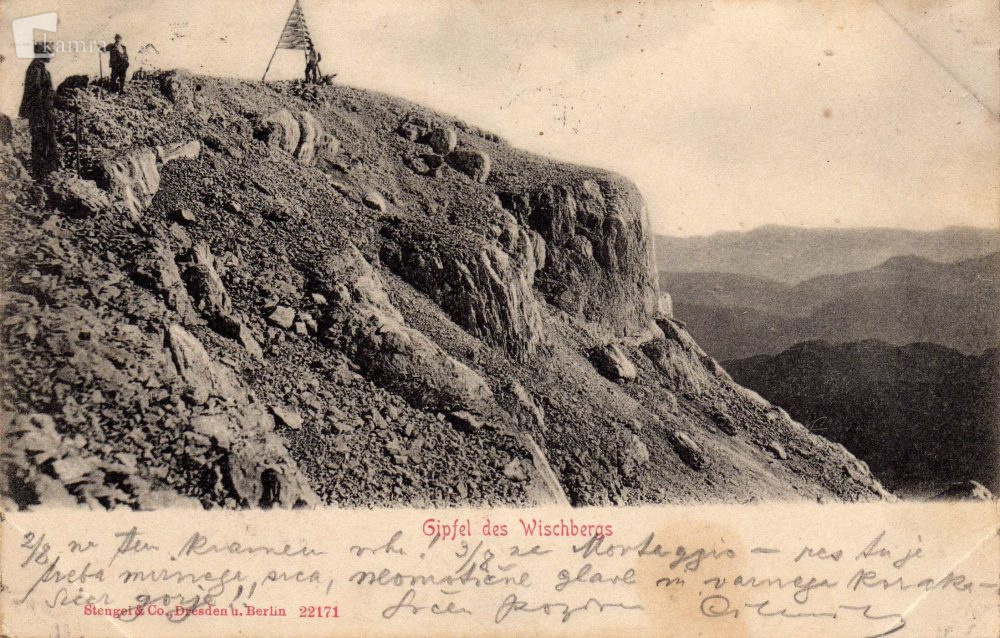 kamra
Gipfel des Wischbergs
2/8 na tem kramem vrhu! 3/8 na Montaggio — res tu je
treba mirnega srca, neomotične glave in varnega koraka —
sicer gorje!! Srčen pozdrav
Stengel & Co., Dresden u. Berlin 22171